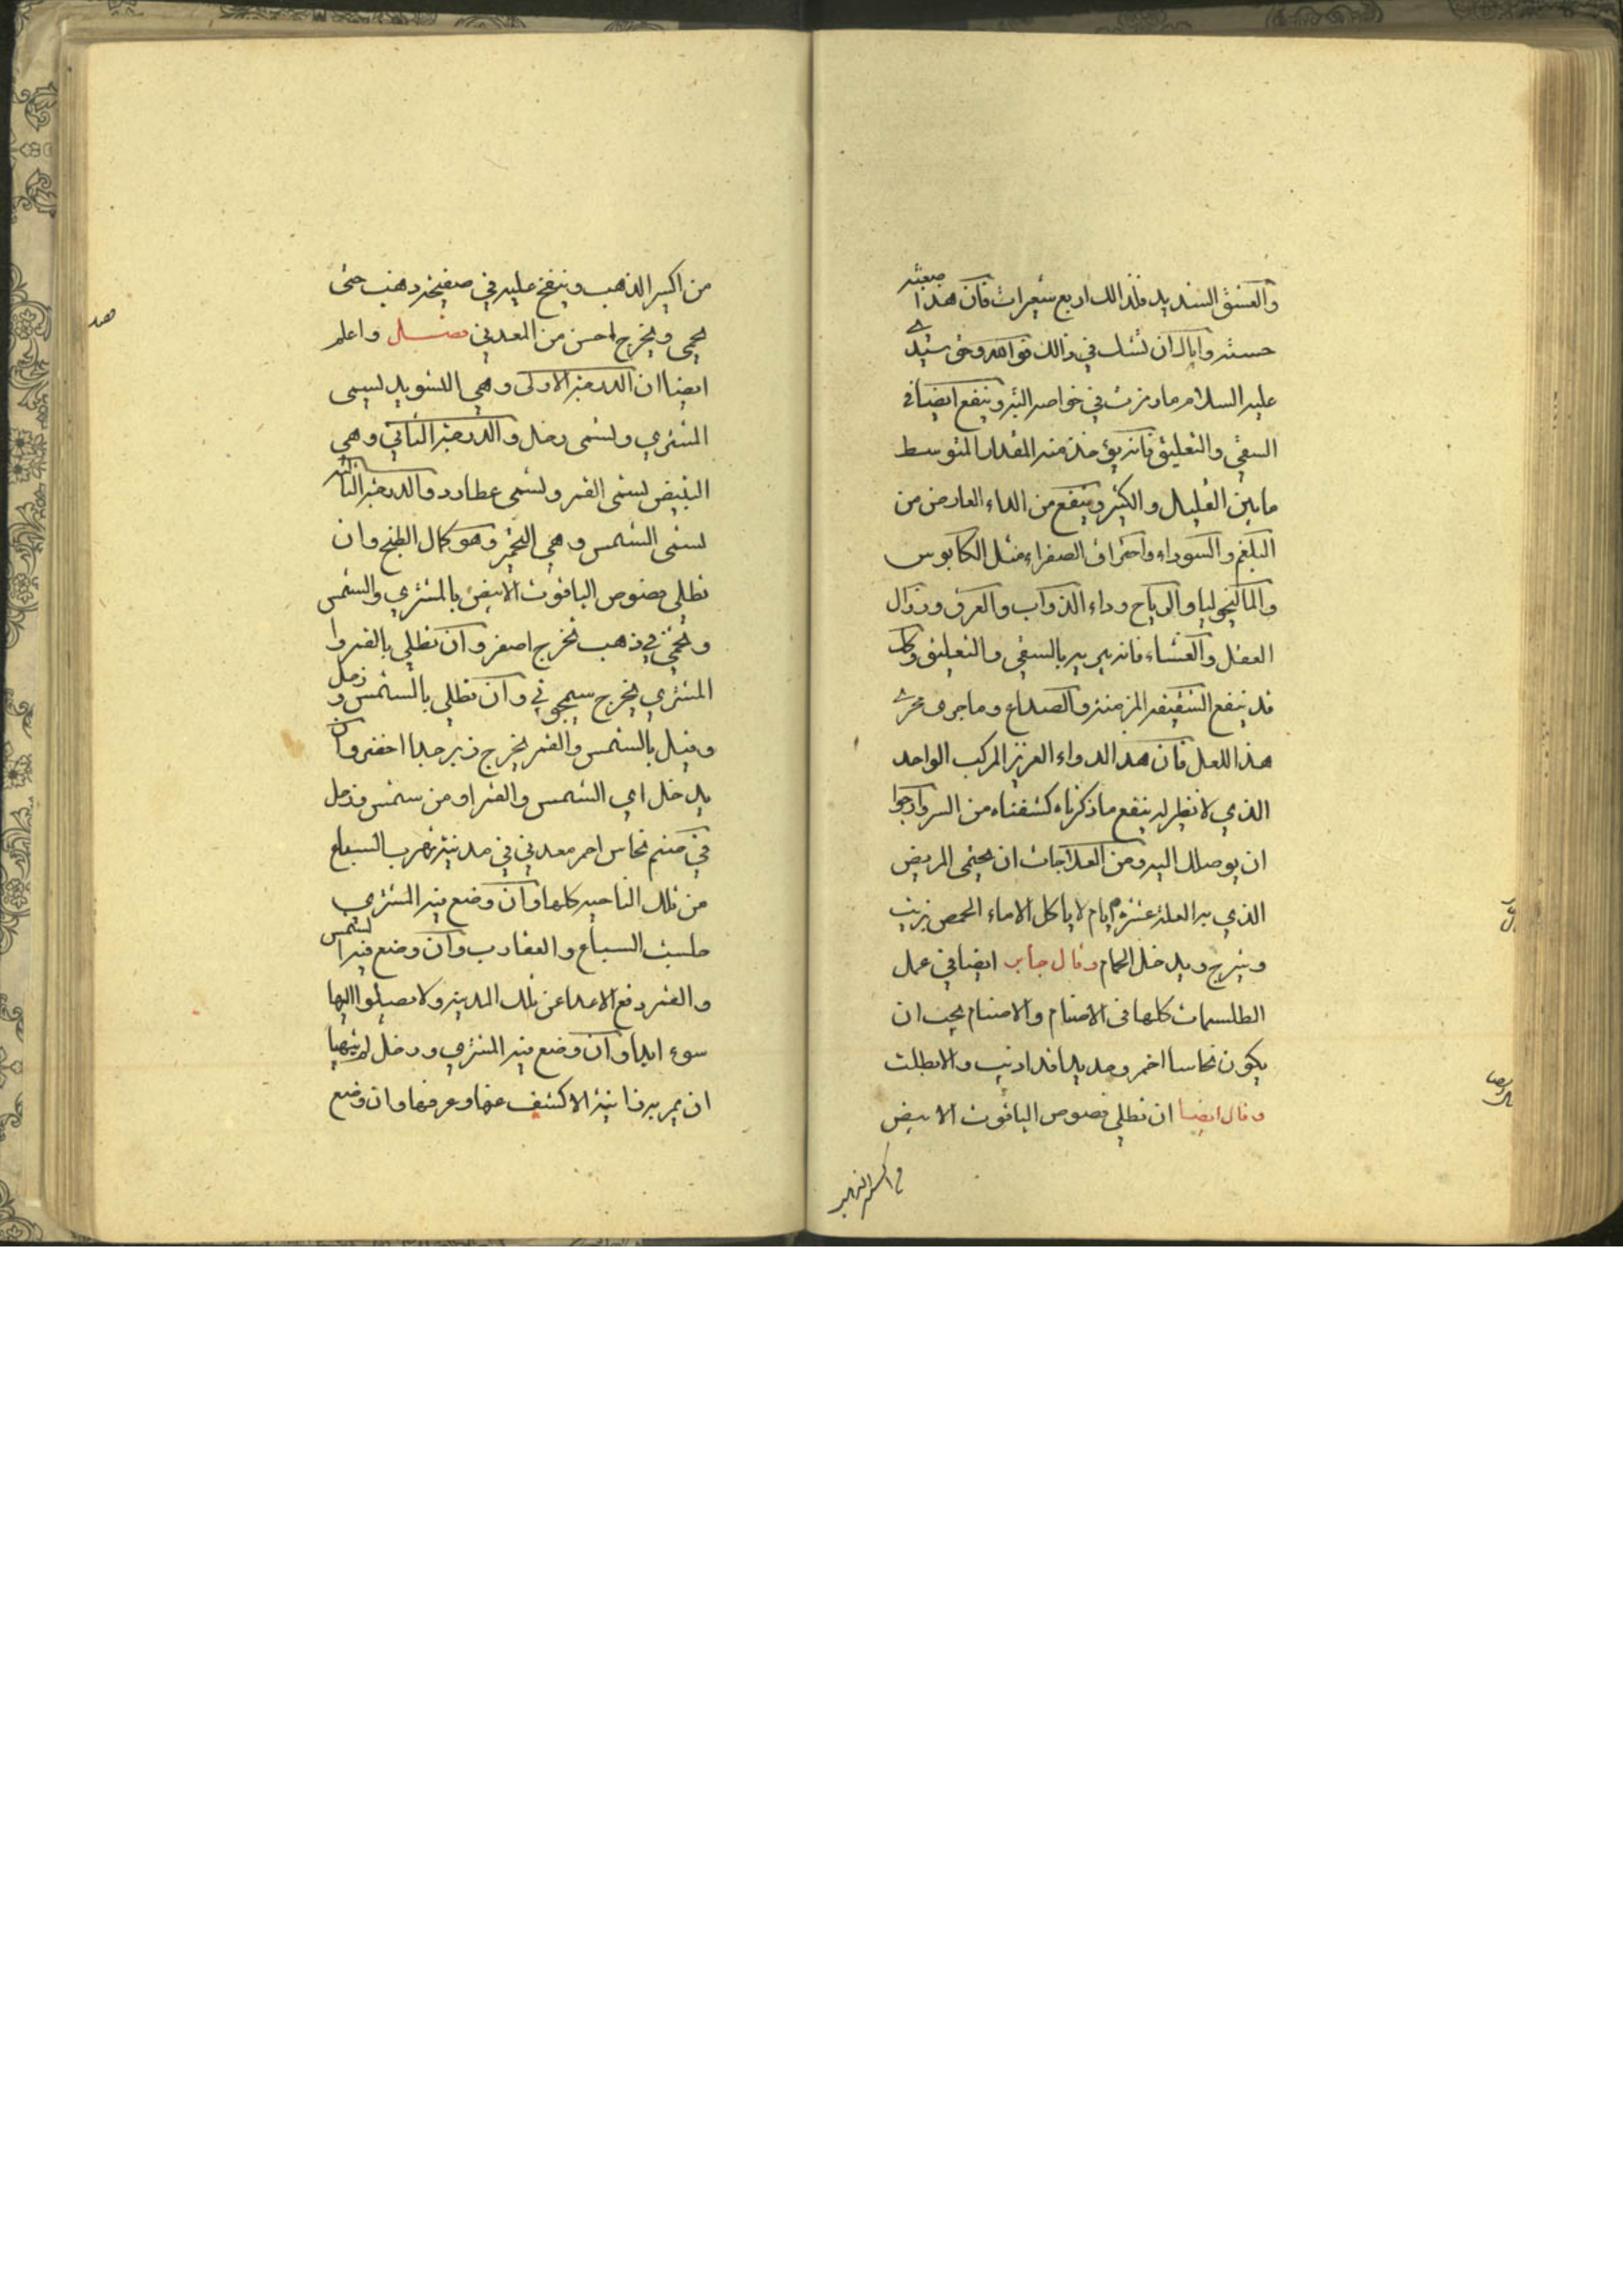 والعشق الشديد فلذالك اربع شعيرات فان هذا صعبة
حسنة واياك ان تشك في ذالك فو الله وحق سيدي
عليه السلام ما رمزت في خواصه البته وينفع ايضا في
السقي والتعليق فانه يؤخذ منه المقدار المتوسط
ما بين القليل والكثير وينفع من الداء العارض من
البلغم والسوداء واحتراق الصفراء مثل الكابوس
والماليخوليا والرياح وداء الذواب والعرق وزوال
العقل والغشاء فانه يبريه بالسقي والتعليق وكل
قد ينفع الشقيقه المزمنة والصداع وما جرى مجرى
هذا للعلل فان هذا الدواء العزيز المركب الواحد
الذي لا نظير له ينفع ما ذكرناه كشفناه من السر وارجوا
ان يوصلك اليه ومن العلاجات ان يحتمي المريض
الذي به العلة عشرة ايام لا ياكل الا ماء الحمص بزيت
وشيرج ويدخل الحمام وقال جابر ايضا في عمل
الطلسمات كلها في الاصنام والاصنام يجب ان
يكون نحاسا احمر وحديدا قد اذيب والا بطلت
وقال ايضا ان تطلي فصوص الياقوت الابيض
من اكسير الذهب وينفخ عليه في صفيحة ذهب حتى
يحمى ويخرج احسن من المعدني فصل واعلم
ايضا ان الدرجة الاولى وهي التسويد تسمى
المشتري وتسمى زحل والدرجة الثاني وهي
التبيض تسمى القمر وتسمى عطارد والدرجة الثالثة
تسمى الشمس وهي التحمير وهو كمال الطبخ وان
تطلي فصوص الياقوت الابيض بالمشتري والشمس
وتحمى في ذهب تخرج اصفر وان تطلي بالقمر وا
المشتري يخرج سمجوني وان تطلي بالشمس و زحل
وقيل بالشمس والقمر يخرج زبرجدا اخضر وان
يدخل اي الشمس والقمر او من شمس وزحل
في صنم نحاس احمر معدني في مدينة تهرب السباع
من تلك الناحيه كلها وان وضع فيه المشتري
جلبت السباع والعقارب وان وضع فيه الشمس
والقمر دفع الاعدا عن تلك المدينة ولا يصلوا اليها
سوء ابدا وان وضع فيه المشتري وزحل لم يتهيا
ان يمر به زانية الا كشف عنها وعرفها وان وضع